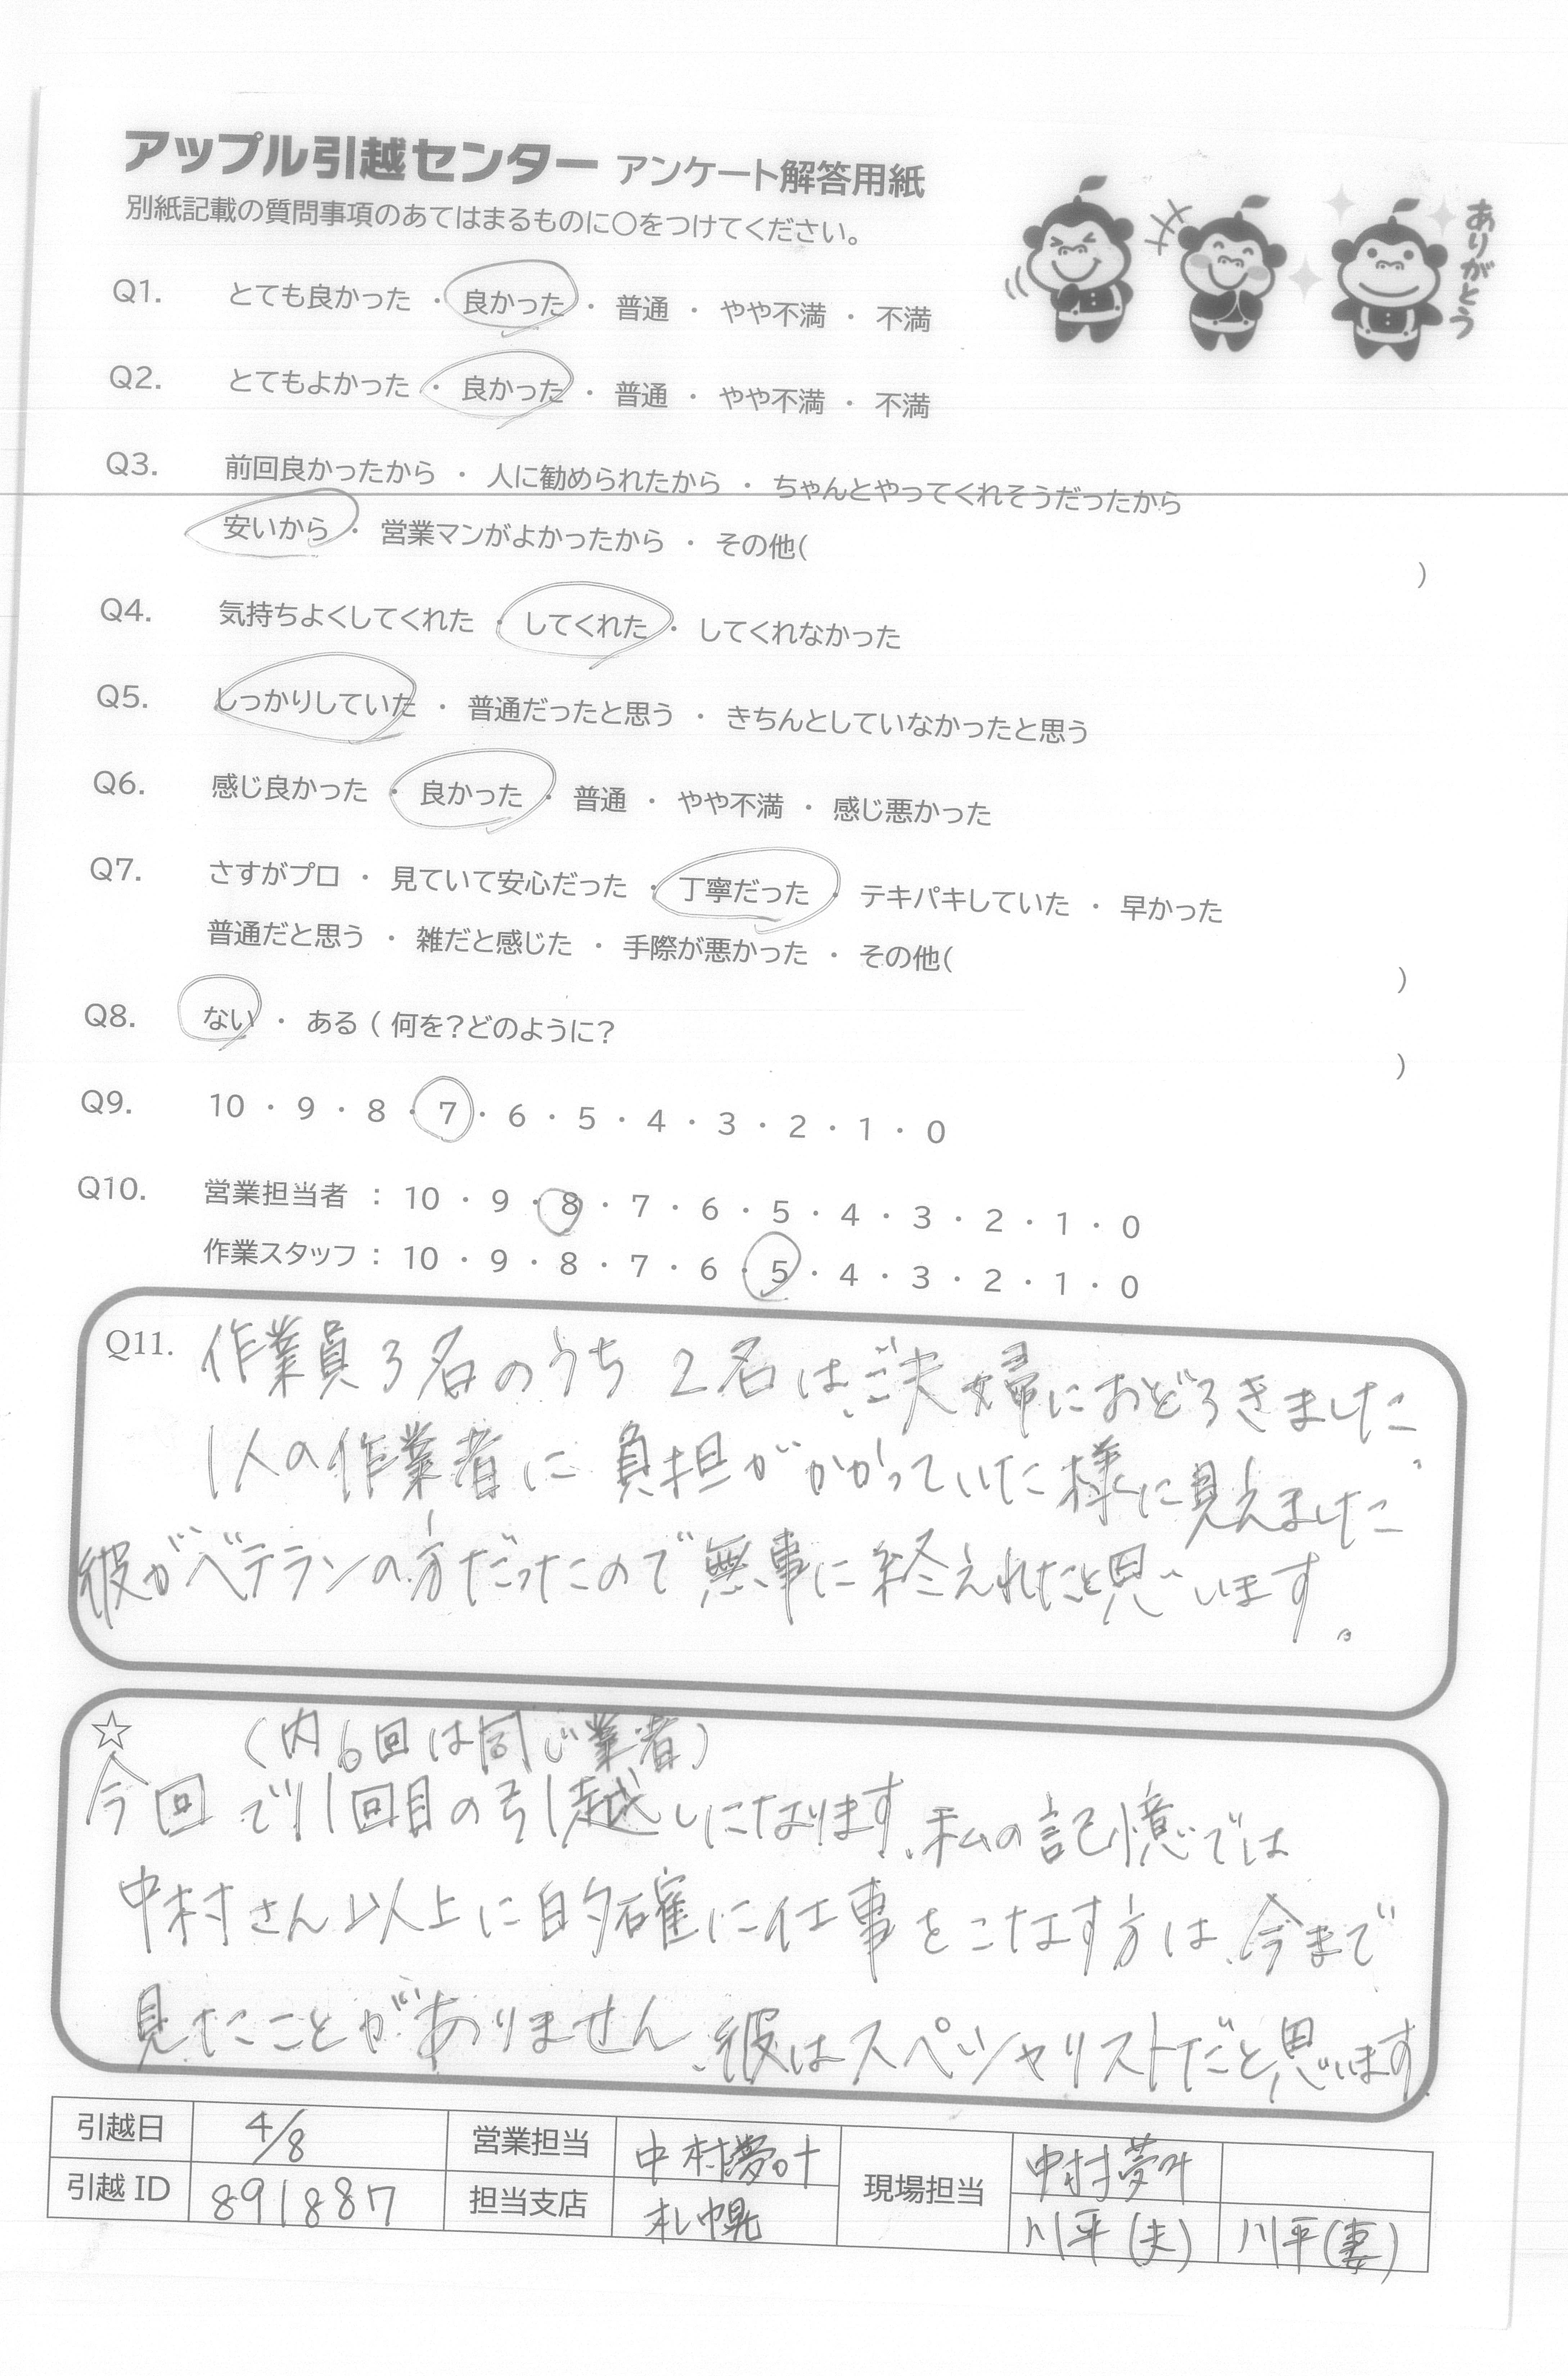 アップル引越センター アンケート解答用紙
別紙記載の質問事項のあてはまるものに○をつけてください。
ありがとう
Q1. とても良かった ・ 良かった ・ 普通 ・ やや不満 ・ 不満
Q2. とてもよかった ・ 良かった ・ 普通 ・ やや不満 ・ 不満
Q3. 前回良かったから ・ 人に勧められたから ・ ちゃんとやってくれそうだったから
安いから ・ 営業マンがよかったから ・ その他( )
Q4. 気持ちよくしてくれた ・ してくれた ・ してくれなかった
Q5. しっかりしていた ・ 普通だったと思う ・ きちんとしていなかったと思う
Q6. 感じ良かった ・ 良かった ・ 普通 ・ やや不満 ・ 感じ悪かった
Q7. さすがプロ ・ 見ていて安心だった ・ 丁寧だった ・ テキパキしていた ・ 早かった
普通だと思う ・ 雑だと感じた ・ 手際が悪かった ・ その他( )
Q8. ない ・ ある ( 何を?どのように? )
Q9. 10 ・ 9 ・ 8 ・ 7 ・ 6 ・ 5 ・ 4 ・ 3 ・ 2 ・ 1 ・ 0
Q10. 営業担当者 : 10 ・ 9 ・ 8 ・ 7 ・ 6 ・ 5 ・ 4 ・ 3 ・ 2 ・ 1 ・ 0
作業スタッフ : 10 ・ 9 ・ 8 ・ 7 ・ 6 ・ 5 ・ 4 ・ 3 ・ 2 ・ 1 ・ 0
Q11. 作業員3名のうち 2名は、ご夫婦におどろきました、
1人の作業者に負担がかかっていた様に見えました
彼がベテランの方だったので無事に終えれたと思います。
☆ (内6回は同じ業者)
今回で11回目の引越しになります、私の記憶では
中村さん以上に的確に仕事をこなす方は、今まで
見たことがありません、彼はスペシャリストだと思います
引越日 4/8 営業担当 中村夢叶 現場担当 中村夢叶
引越ID 891887 担当支店 札幌 川平(夫) 川平(妻)